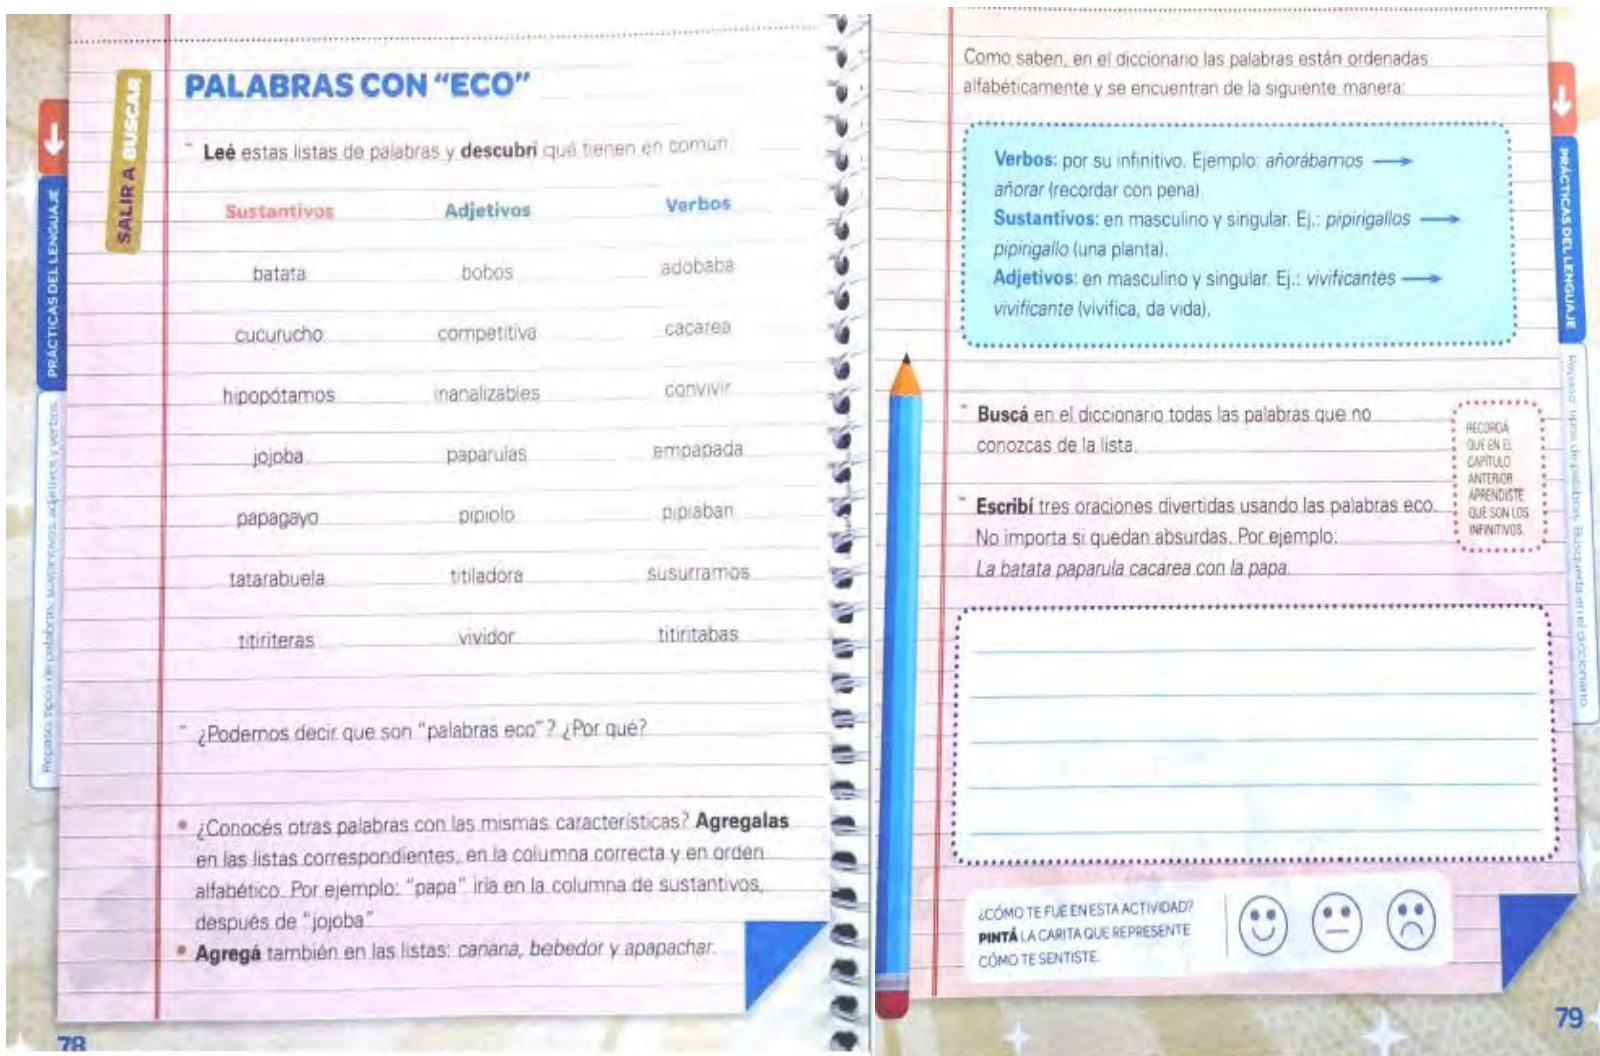 SALIR A BUSCAR
PRÁCTICAS DEL LENGUAJE
Repaso: tipos de palabras: sustantivos, adjetivos y verbos.
PALABRAS CON “ECO”
Leé estas listas de palabras y descubrí qué tienen en común.
Sustantivos Adjetivos Verbos
batata bobos adobaba
cucurucho competitiva cacarea
hipopótamos inanalizables convivir
jojoba paparulas empapada
papagayo pipiolo pipiaban
tatarabuela titiladora susurramos
titiriteras vividor titiritabas
¿Podemos decir que son “palabras eco”? ¿Por qué?
• ¿Conocés otras palabras con las mismas características? Agregalas
en las listas correspondientes, en la columna correcta y en orden
alfabético. Por ejemplo: “papa” iría en la columna de sustantivos,
después de “jojoba”.
• Agregá también en las listas: canana, bebedor y apapachar.
78
Como saben, en el diccionario las palabras están ordenadas
alfabéticamente y se encuentran de la siguiente manera:
Verbos: por su infinitivo. Ejemplo: añorábamos →
añorar (recordar con pena).
Sustantivos: en masculino y singular. Ej.: pipirigallos →
pipirigallo (una planta).
Adjetivos: en masculino y singular. Ej.: vivificantes →
vivificante (vivifica, da vida).
Buscá en el diccionario todas las palabras que no
conozcas de la lista.
RECORDÁ
QUE EN EL
CAPÍTULO
ANTERIOR
APRENDISTE
QUÉ SON LOS
INFINITIVOS.
Escribí tres oraciones divertidas usando las palabras eco.
No importa si quedan absurdas. Por ejemplo:
La batata paparula cacarea con la papa.
¿CÓMO TE FUE EN ESTA ACTIVIDAD?
PINTÁ LA CARITA QUE REPRESENTE
CÓMO TE SENTISTE.
PRÁCTICAS DEL LENGUAJE
Repaso: tipos de palabras. Búsqueda en el diccionario.
79